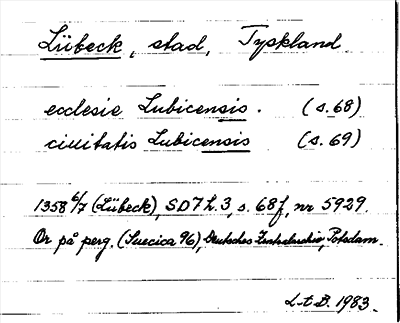 Lübeck, stad, Tyskland.
ecclesie Lubicensis. (s. 68)
ciuitatis Lubicensis (s. 69)
1358 6/7 (Lübeck), SD7 h. 3, s. 68f, nr 5929.
Or på perg. (Suecica 96), Deutsches Zentralarchiv, Potsdam.
L.t.D. 1983.